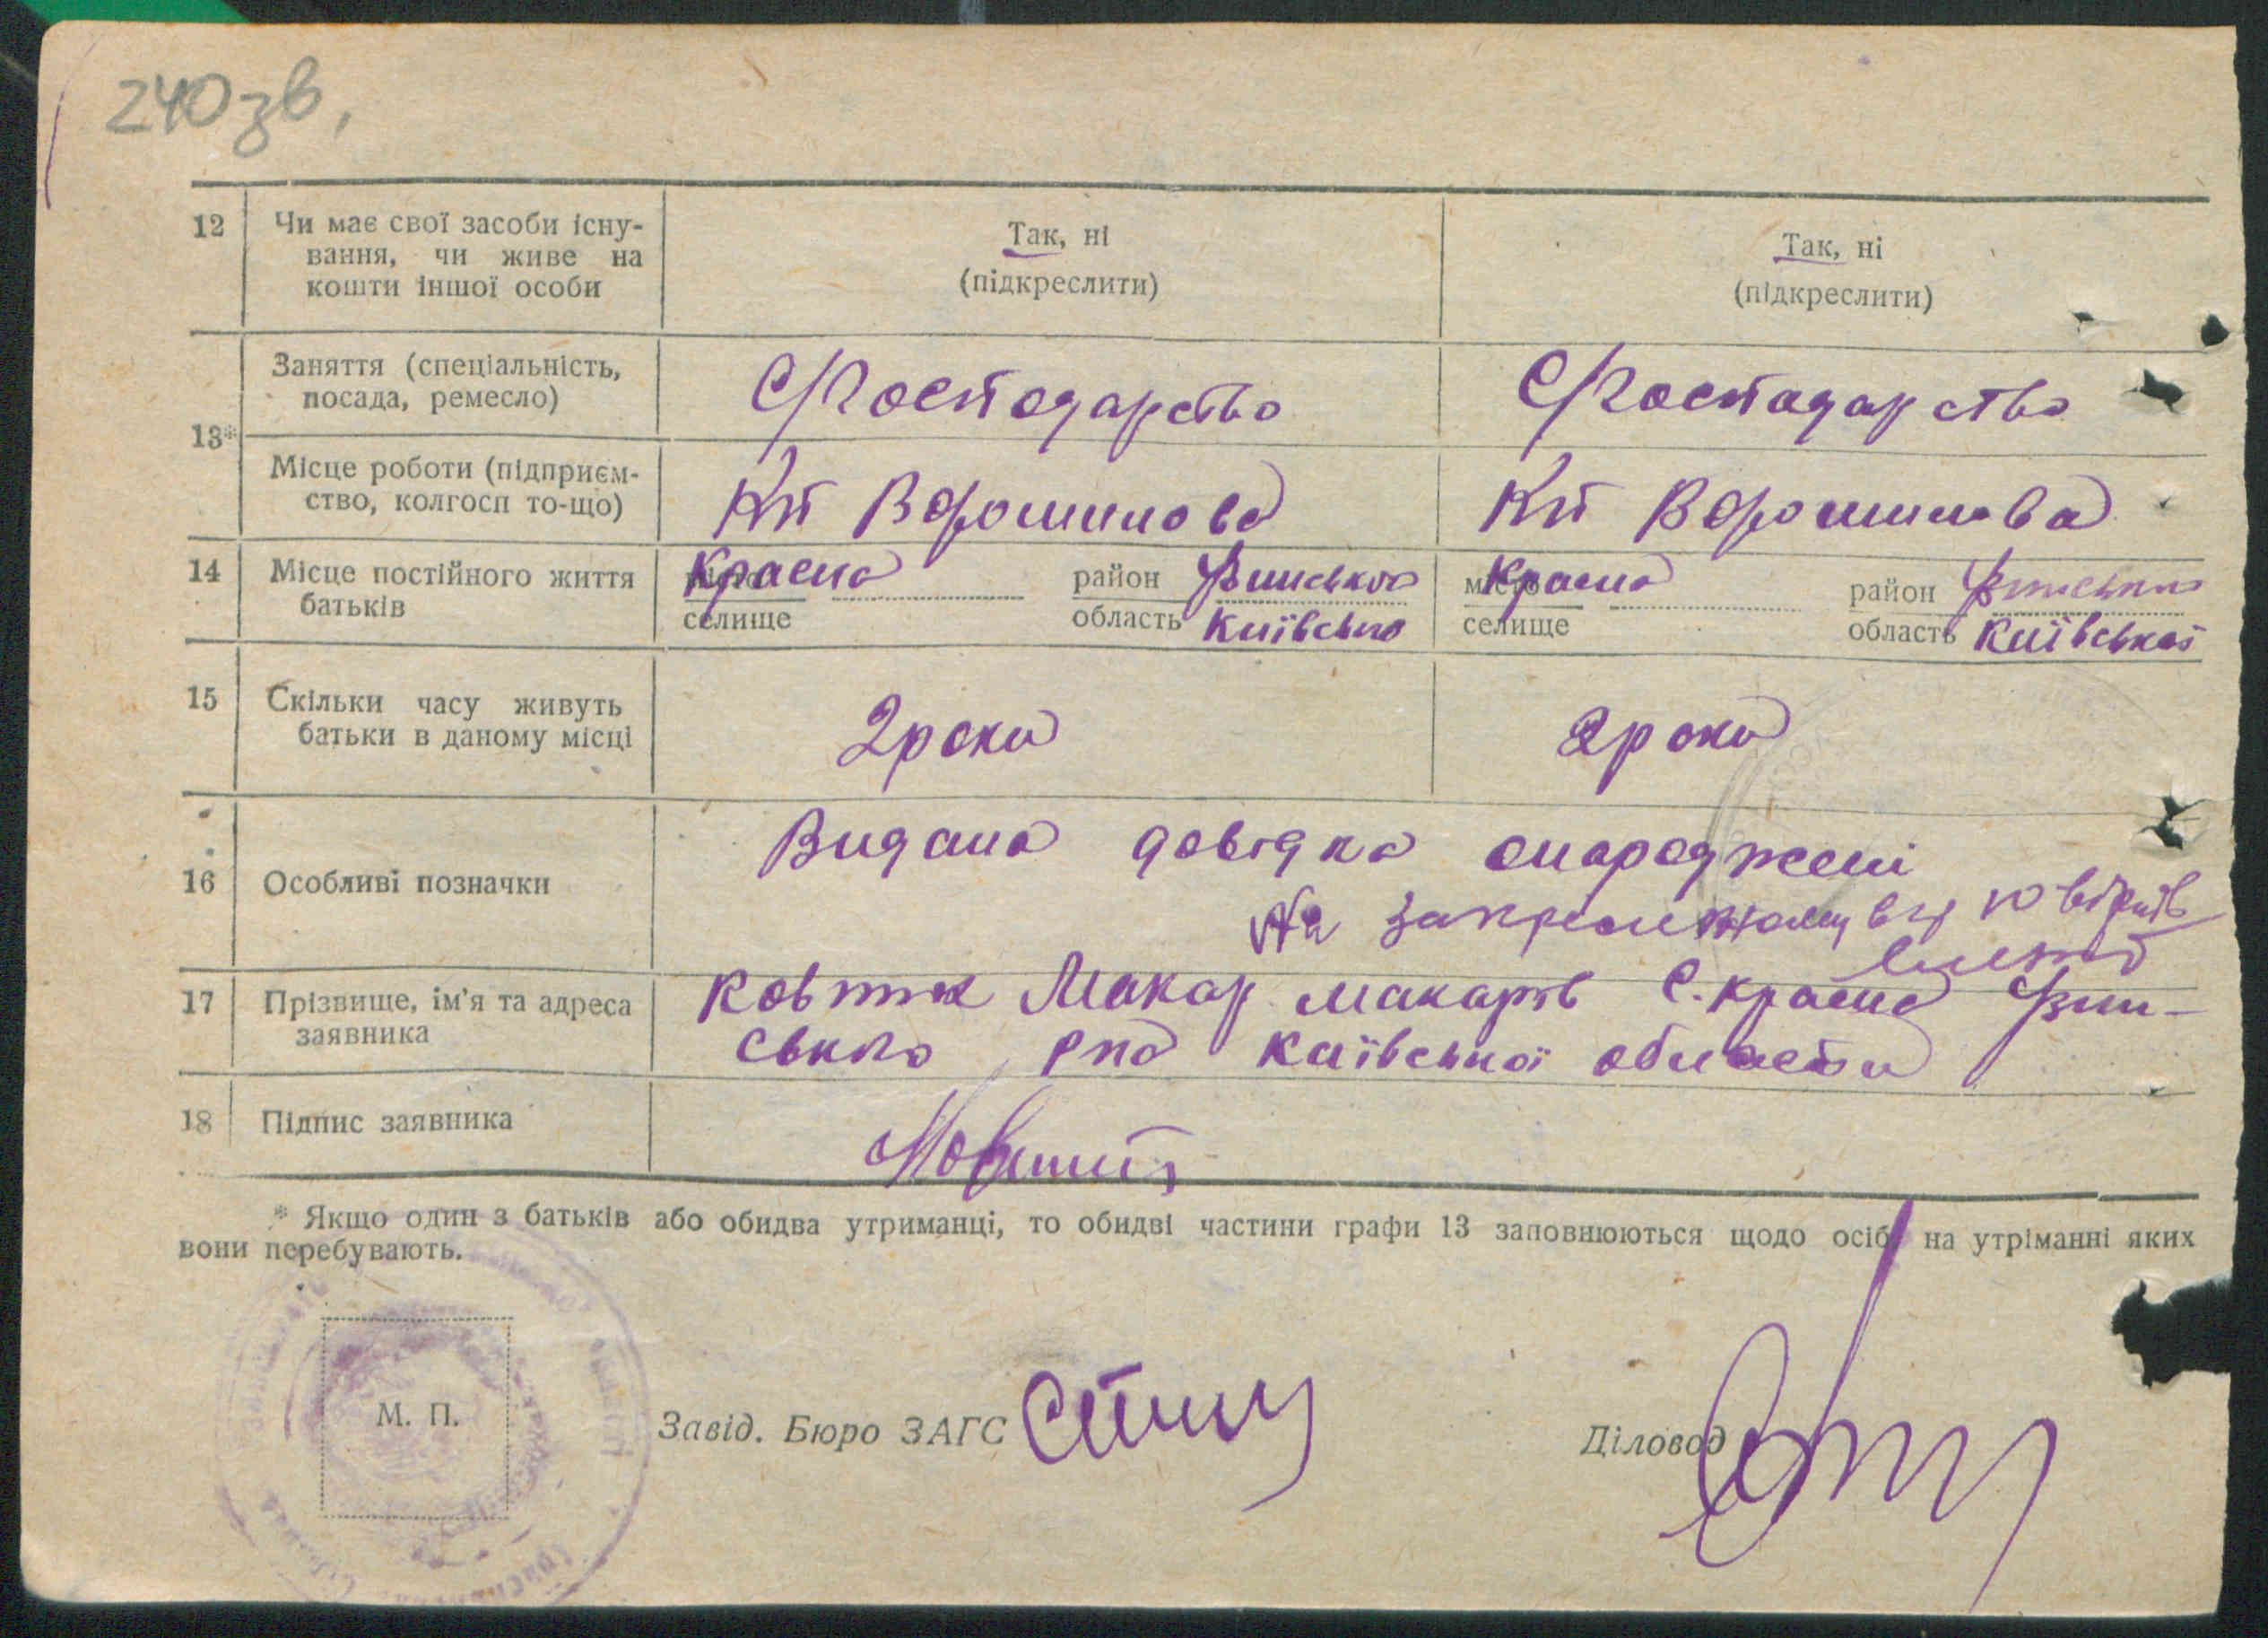 240 зв,
12 Чи має свої засоби існу- Так, ні Так, ні
вання, чи живе на (підкреслити) (підкреслити)
кошти іншої особи
Заняття (спеціальність, С/Господарство С/Господарство
посада, ремесло)
13*
Місце роботи (підприєм- Кт Ворошилова Кт Ворошилова
ство, колгосп то-що)
14 Місце постійного життя місто Красна район місто Красна район
батьків селище область Київсько селище область Київської
15 Скільки часу живуть 2 роки 2 роки
батьки в даному місці
Видана довідка онароджені
16 Особливі позначки
17 Прізвище, ім'я та адреса Макар с. Красна
заявника ського Київської области
18 Підпис заявника
* Якщо один з батьків або обидва утриманці, то обидві частини графи 13 заповнюються щодо осіб, на утріманні яких
вони перебувають.
М. П.
Завід. Бюро ЗАГС Діловод